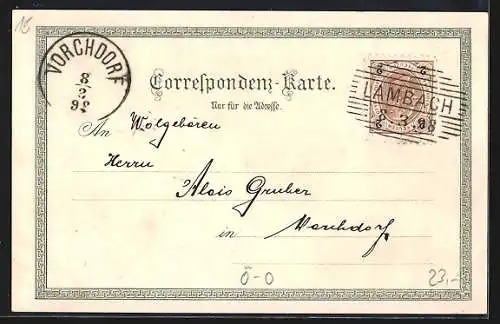 16
VORCHDORF
8/3
98
Correspondenz-Karte.
Nur für die Adresse.
LAMBACH
8 3 98
2 2
2 2
An Wolgebören
Herrn
Alois Gruber
in Vorchdorf
Ö-O
23,-